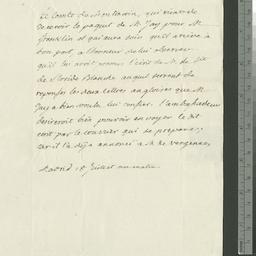 Le Comte de Montmorin, qui vient de
recevoir le paquet de M. Jay pour M.
franklin et qui aura soin qu'il arrive à
bon port, a l'honneur de lui observer
qu'il lui avoit remis l'écrit de M. le Cte
de floride Blanche auquel servent de
reponses les deux lettres angloises que M.
Jay a bien voulu lui confier. l'ambassadeur
desireroit bien pouvoir envoyer le dit
écrit par le courrier qui se prepare;
car il l'a deja annoncé a M. de vergennes.
Mardi